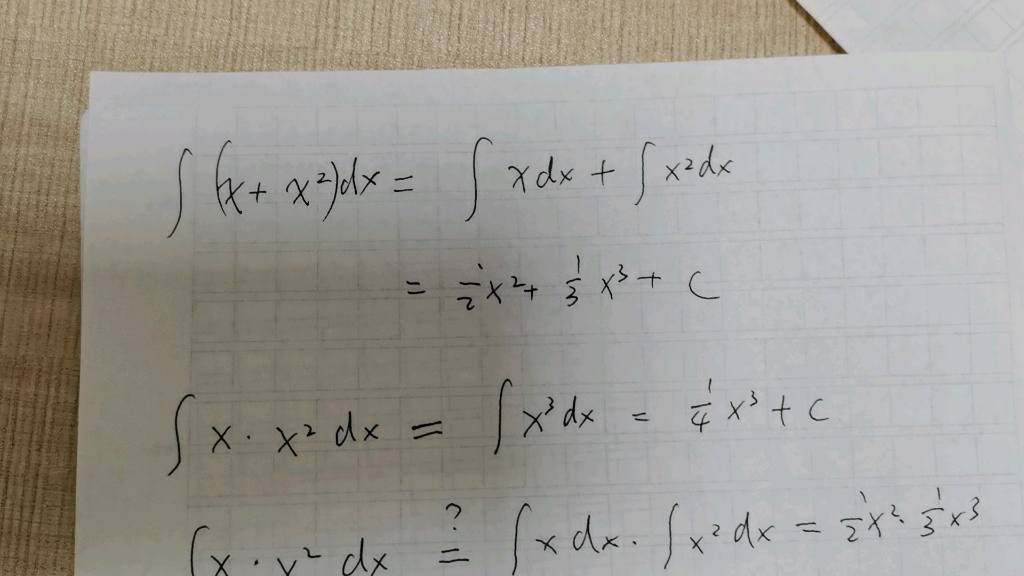 ∫ (x + x²)dx = ∫ x dx + ∫ x² dx
= 1/2 x² + 1/3 x³ + C
∫ x · x² dx = ∫ x³ dx = 1/4 x³ + C
∫ x · x² dx ?= ∫ x dx · ∫ x² dx = 1/2 x² · 1/3 x³